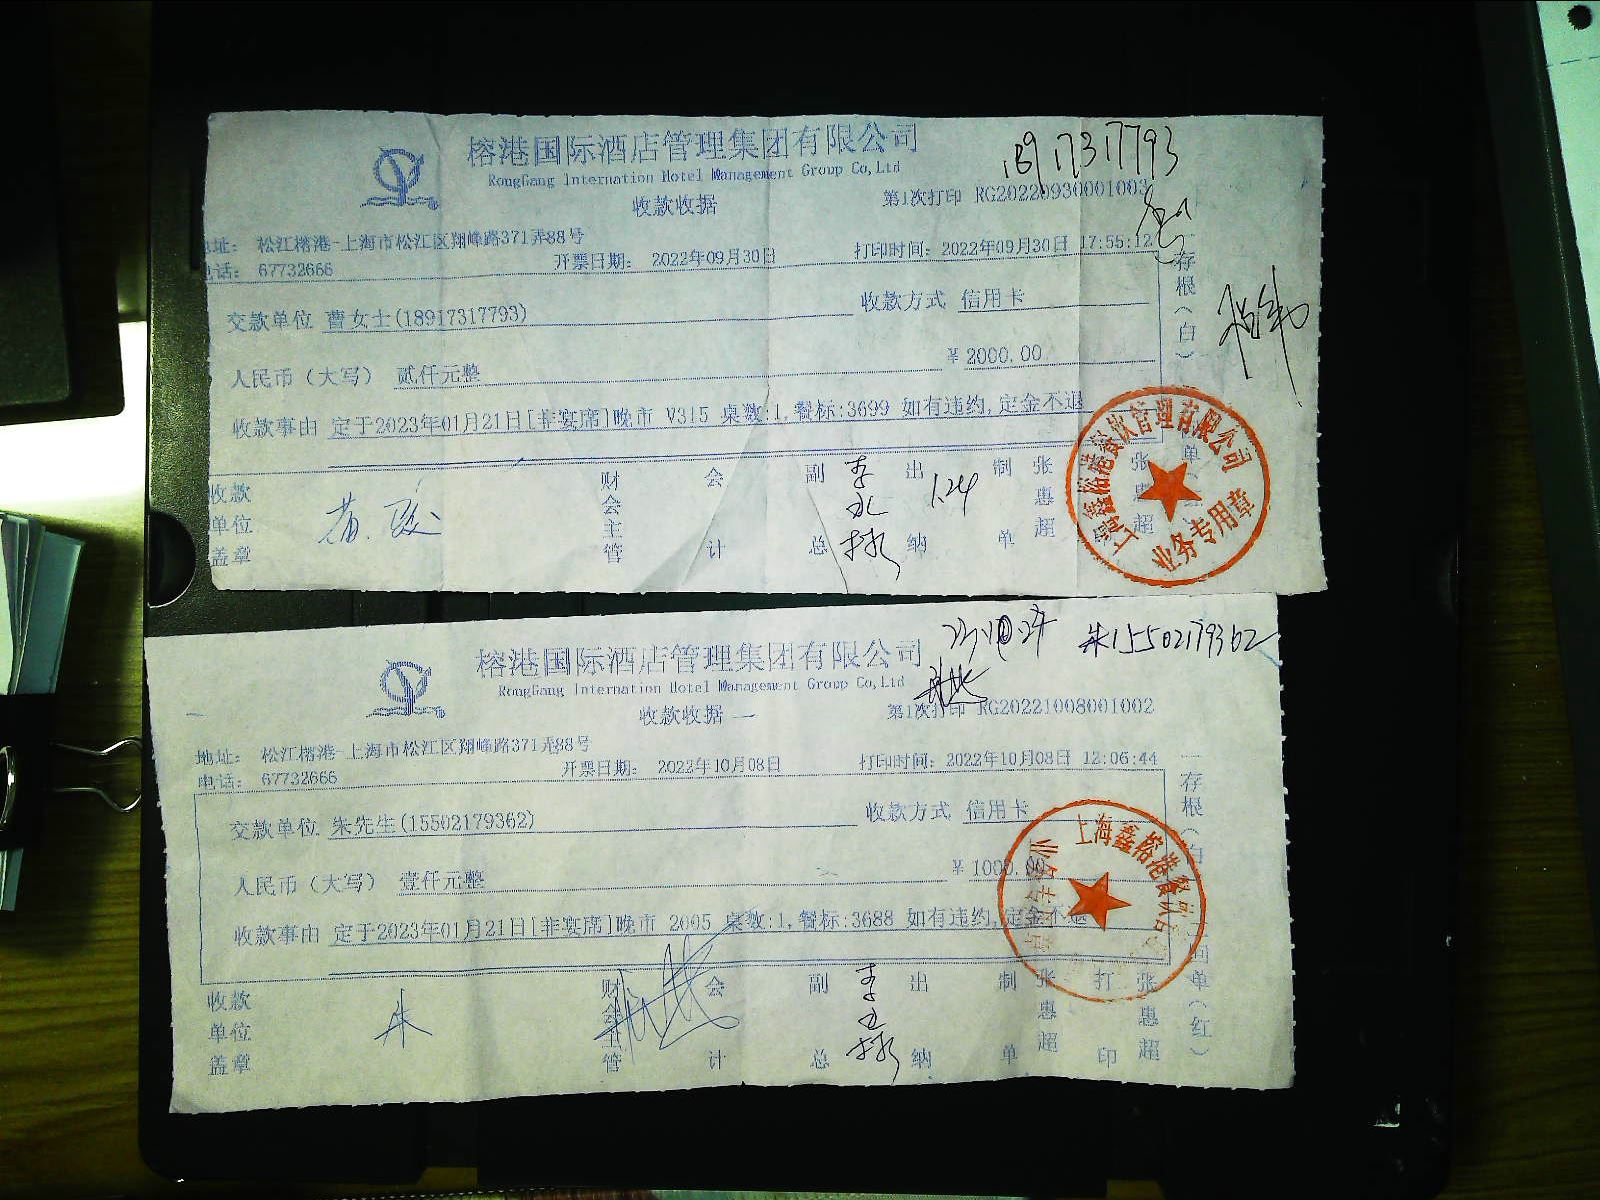 榕港国际酒店管理集团有限公司
18917317793
RongGang Internation Hotel Management Group Co,Ltd
收款收据
第1次打印 RG20220930001003
地址： 松江榕港-上海市松江区翔峰路371弄88号
电话： 67732666
开票日期： 2022年09月30日
打印时间：2022年09月30日 17:55:12
交款单位 曹女士(18917317793)
收款方式 信用卡
人民币（大写） 贰仟元整
￥2000.00
收款事由 定于2023年01月21日[非宴席]晚市 V315 桌数:1,餐标:3699 如有违约,定金不退
收款单位盖章
财会主管
会计
副总
出纳
1.24
制单
张惠超
张惠超
一存根（白）
上海鑫榕港餐饮管理有限公司
业务专用章
榕港国际酒店管理集团有限公司
朱15502179362
RongGang Internation Hotel Management Group Co,Ltd
收款收据
第1次打印 RG20221008001002
地址： 松江榕港-上海市松江区翔峰路371弄88号
电话： 67732666
开票日期： 2022年10月08日
打印时间：2022年10月08日 12:06:44
交款单位 朱先生(15502179362)
收款方式 信用卡
人民币（大写） 壹仟元整
￥1000.00
收款事由 定于2023年01月21日[非宴席]晚市 2005 桌数:1,餐标:3688 如有违约,定金不退
收款单位盖章
朱
财会主管
会计
副总
出纳
制单
张惠超
打印
张惠超
一存根（白
单（红）
上海鑫榕港餐饮